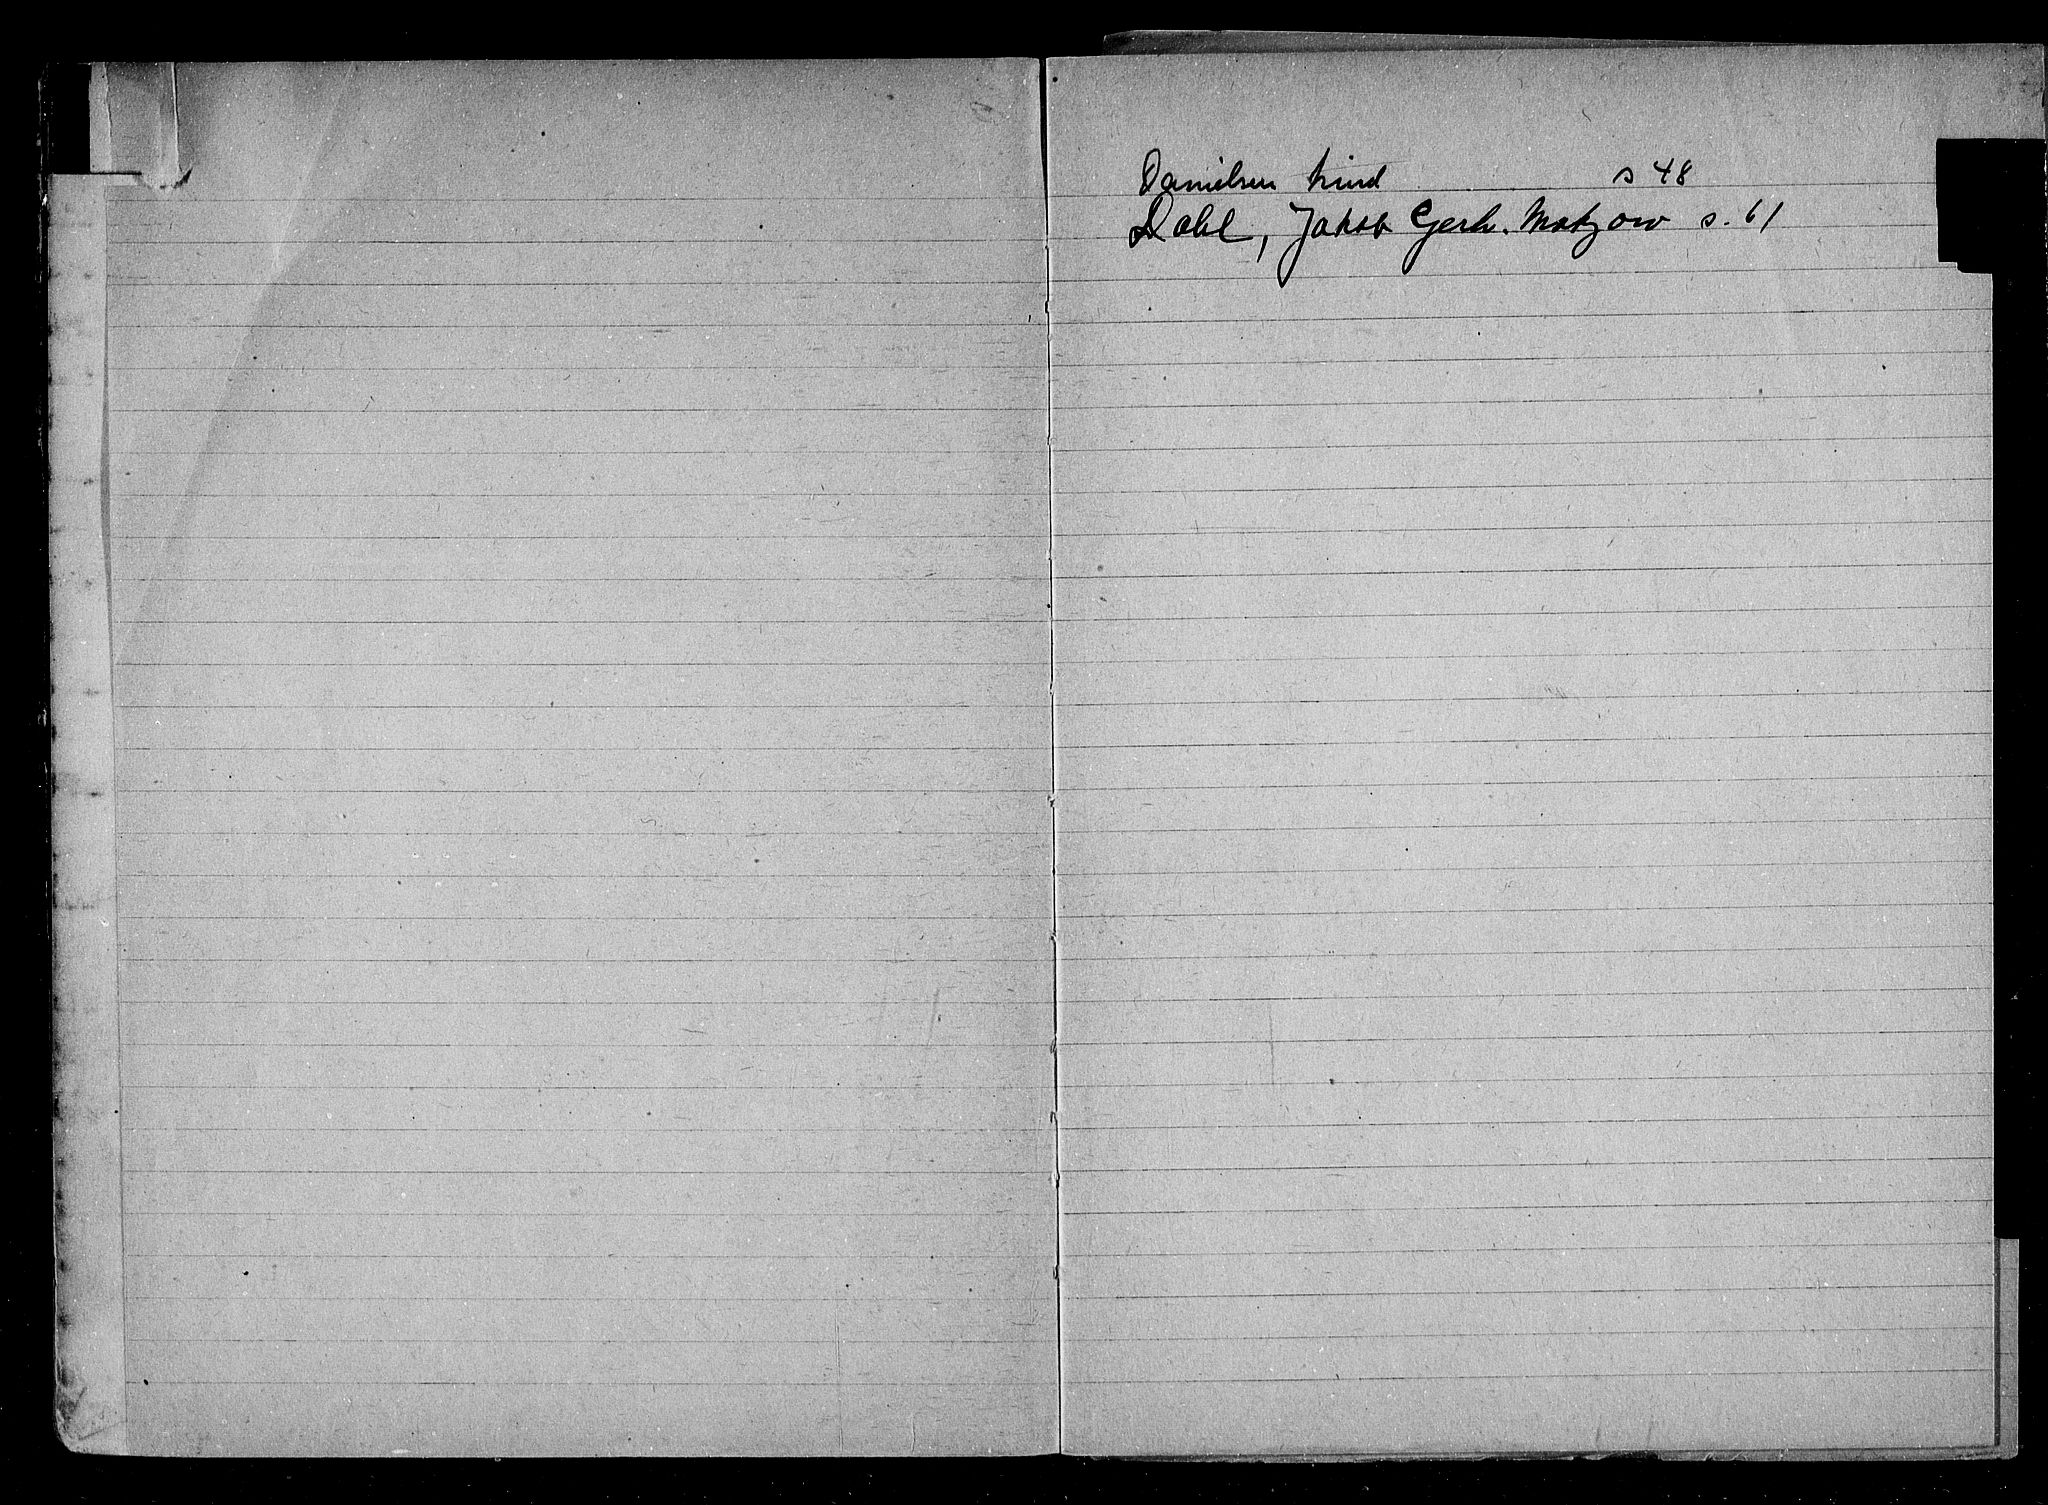 Danielsen Trued s 48
Dahl, Jakob Gerh. Matzow s. 61